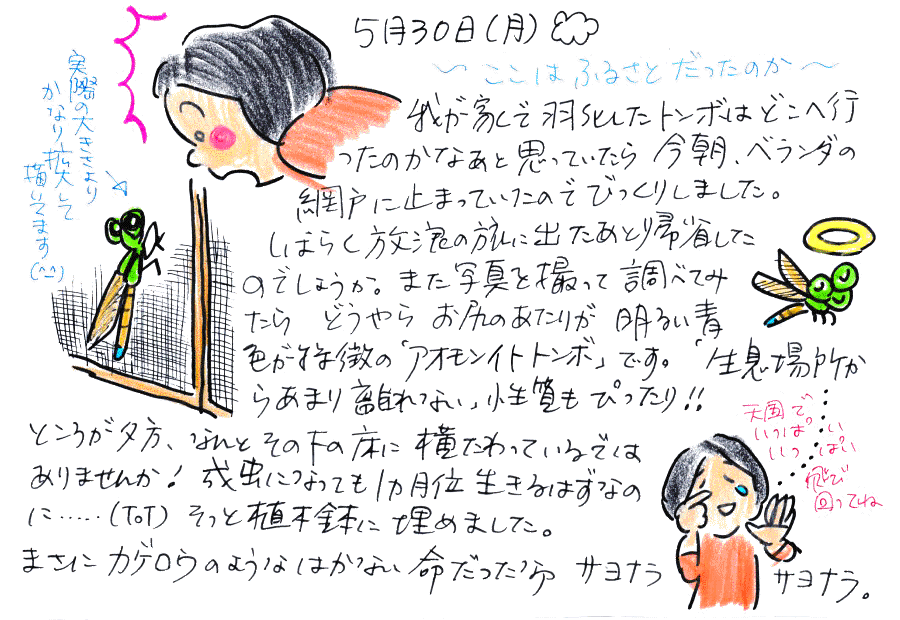 5月30日(月)
〜ここはふるさとだったのか〜
実際の大きさより
かなり拡大して
描いてます(^-^)
我が家で羽化したトンボはどこへ行
ったのかなぁと思っていたら 今朝、ベランダの
網戸に止まっていたのでびっくりしました。
しばらく放浪の旅に出たあと帰省した
のでしょうか。また写真を撮って調べてみ
たら どうやら お尻のあたりが 明るい青
色が特徴の「アオモンイトトンボ」です。「生息場所か
らあまり離れない」性質もぴったり!!
ところが夕方、なんとその下の床に横たわっているでは
ありませんか! 成虫になっても1ヵ月位生きるはずなの
に……(ToT) そっと植木鉢に埋めました。
まさにカゲロウのようなはかない命だったなぁ サヨナラ サヨナラ。
天国で
いっぱい
いっぱい
飛び
回ってね